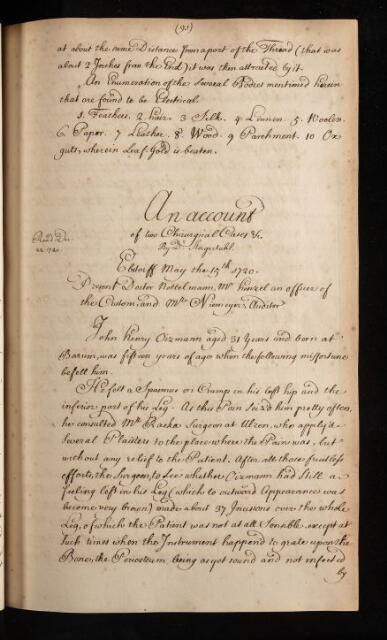 (95)
at about the same Distance from a part of the Thread (that was
about 2 Inches from the End) it was then attracted by it.
An Enumeration of the Several Bodies mentioned herein
that are found to be Electrical.
1. Feathers. 2 hair. 3 Silk. 4 Linnen. 5. Woolen.
6 Paper. 7 Leather. 8 Wood. 9 Parchment. 10 Ox
guts, wherein Leaf Gold is beaten.
An account
of two Chirurgical Cases &c.
By Dr.
Read Dec.
22. 1720.
Ebstorff May the 15th 1720.
Present Doctor Nottelmann, Mr. Hinzel an officer of
the Custom, and Mr. Niemeyer Auditor
John Henry Oizmann aged 31 Years and born at
Barum, was fifteen years of age when the following misfortune
befell him.
He felt a Spasmus or Cramp in his left hip and the
inferior part of his Leg. As this Pain seiz'd him pretty often,
he consulted Mr. Raska Surgeon at Ulzen, who apply'd
Several Plaisters to the place where the Pain was, but
without any relief to the Patient. After all those fruitless
efforts, the Surgeon, to see whether Oizmann had still a
feeling left in his Leg (which to outward appearances was
become very brown) made about 37 Incisions over the whole
Leg, of which the Patient was not at all Sensible, except at
such times when the Instrument happend to grate upon the
Bones, the Periosteum being as yet sound and not infected
by